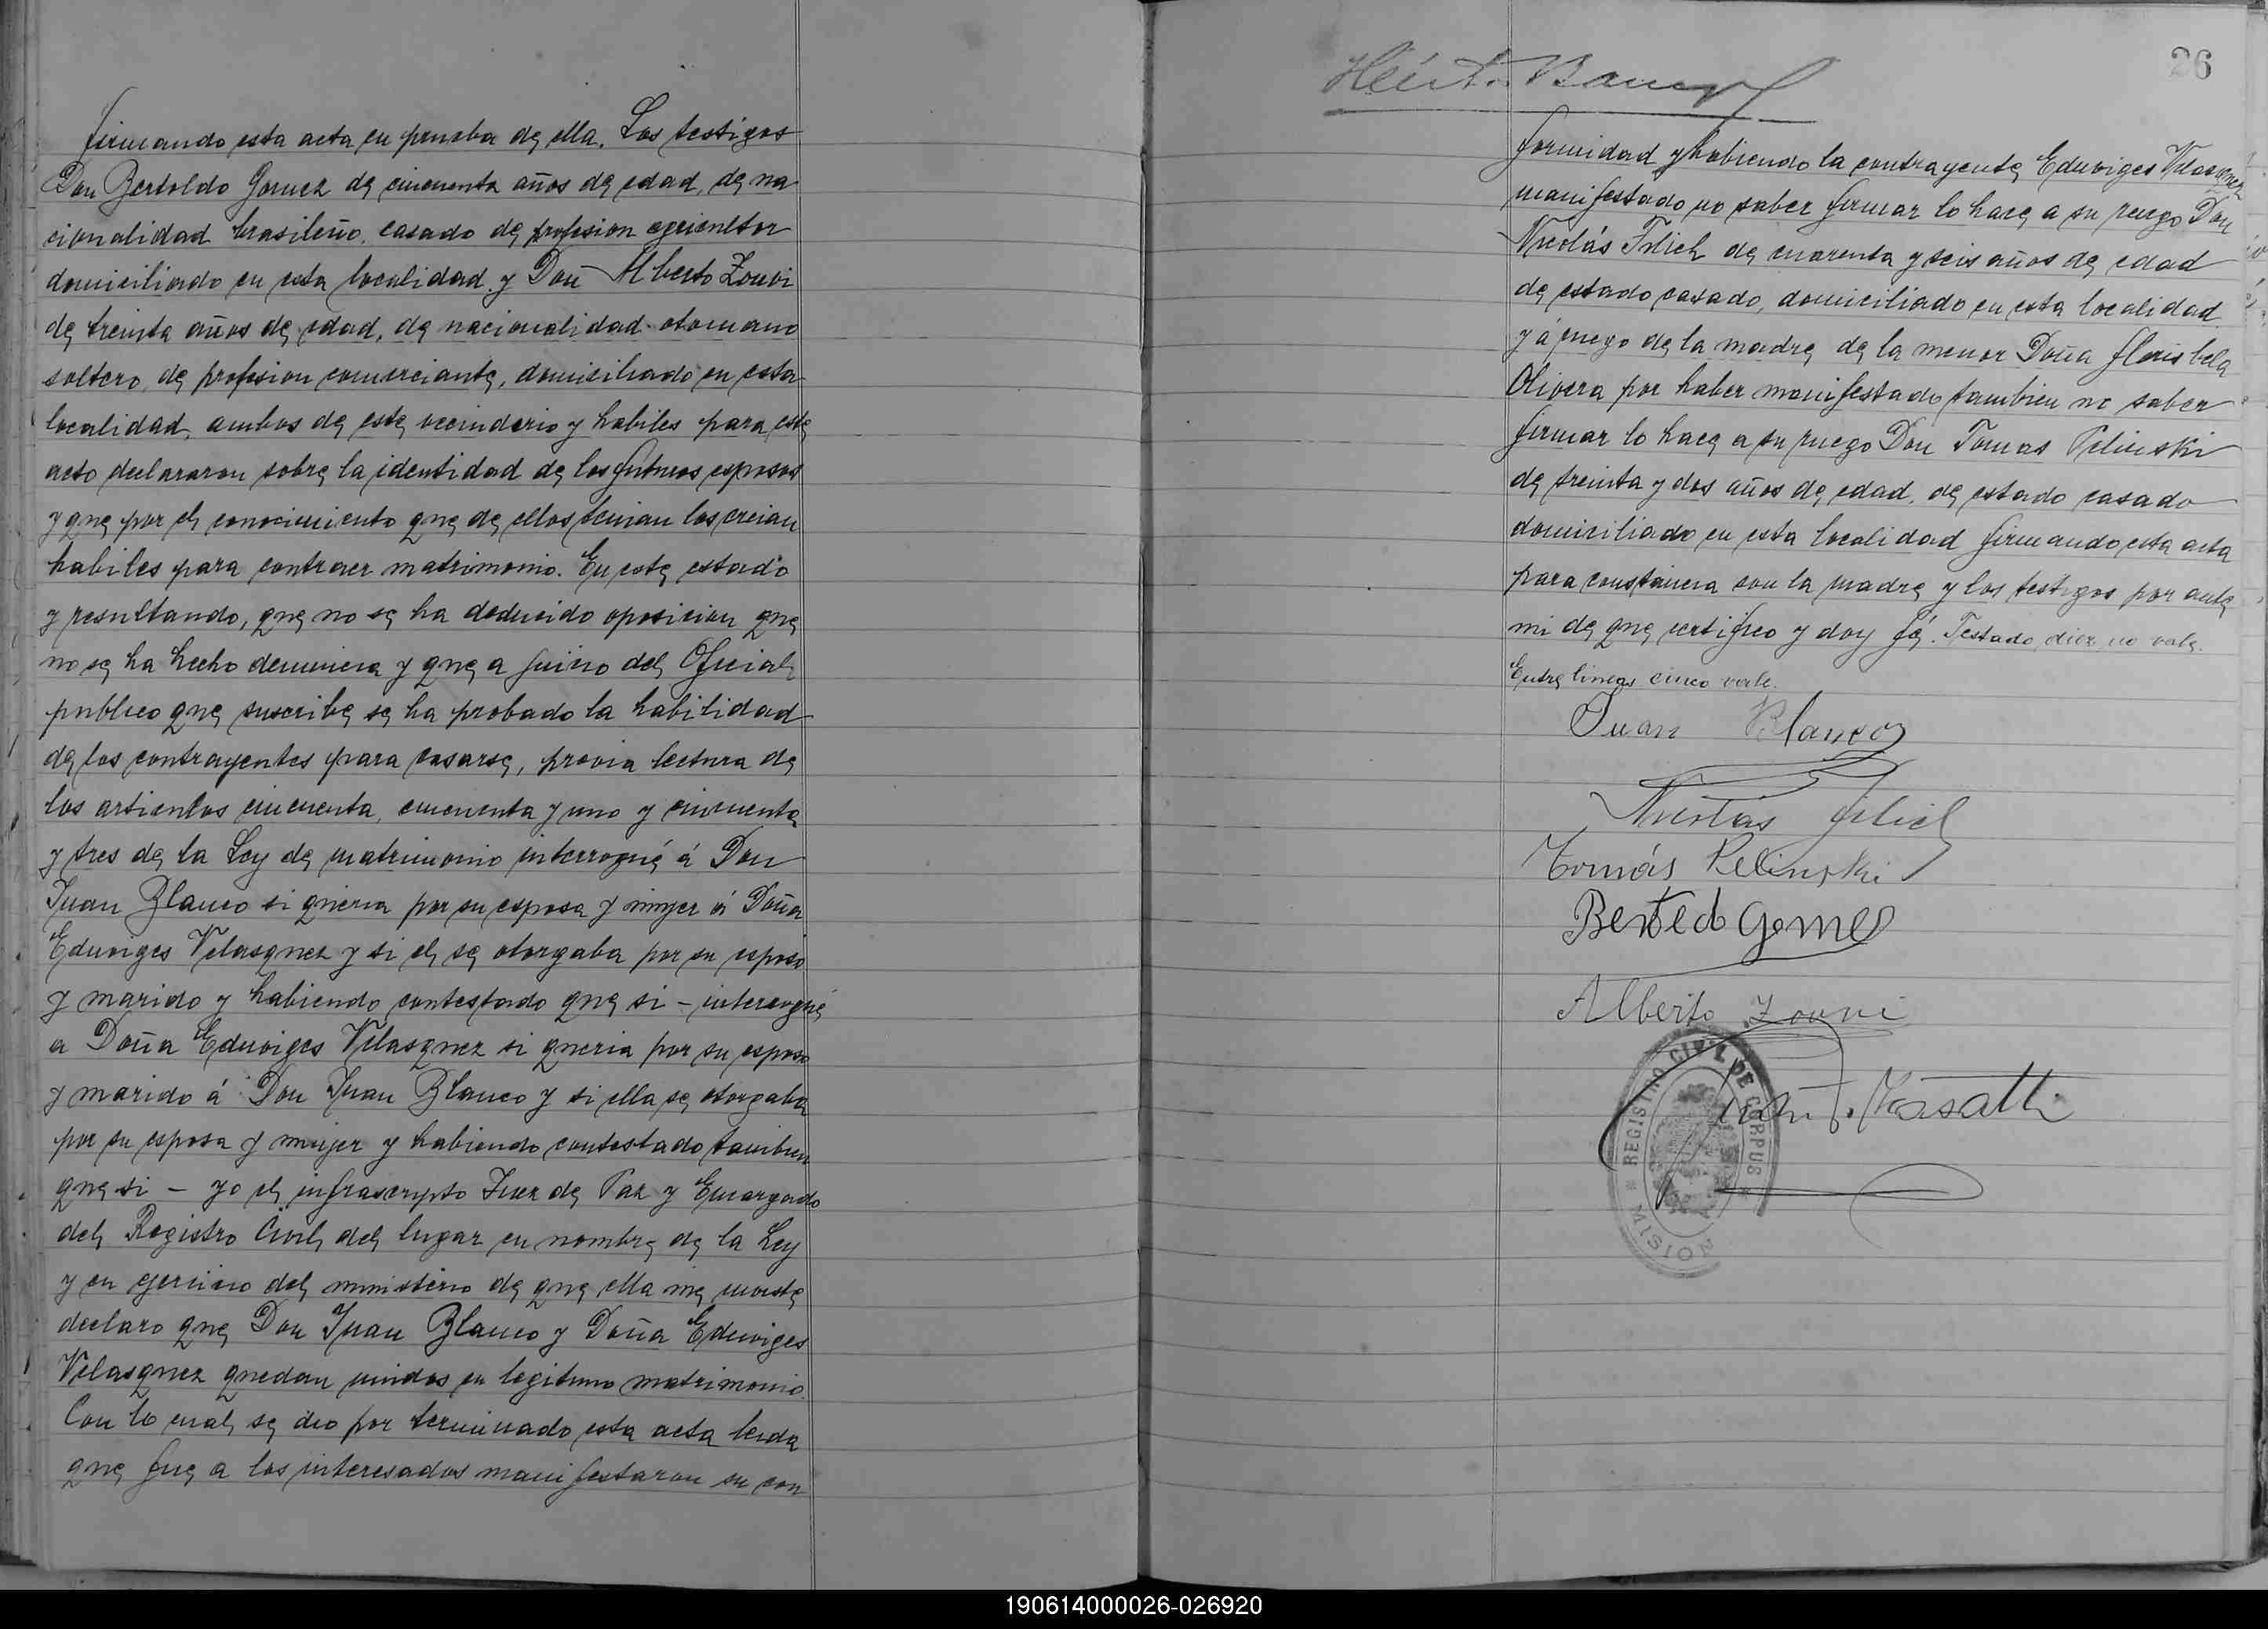 firmando esta acta en prueba de ella. Los testigos
Don Bertoldo Gomez de cincuenta años de edad, de na
cionalidad brasileño, casado de profesion agricultor
domiciliado en esta localidad y Don Alberto Zouvi
de treinta años de edad, de nacionalidad otomano
soltero, de profesion comerciante, domiciliado en esta
localidad, ambos de este vecindario y habiles para este
acto declararon sobre la identidad de los futuros esposos
y que por el conocimiento que de ellos tenian los creian
habiles para contraer matrimonio. En este estado
y resultando, que no se ha deducido oposicion que
no se ha hecho denuncia y que a juicio del Oficial
publico que suscribe se ha probado la habilidad
de los contrayentes para casarse, previa lectura de
los articulos cincuenta, cincuenta y uno y cincuenta
y tres de la Ley de matrimonio interrogué á Don
Juan Blanco si queria por su esposa y mujer á Doña
Eduviges Velasquez y si el se otorgaba por su esposo
y marido y habiendo contestado que si – interrogué
a Doña Eduviges Velasquez si queria por su esposo
y marido á Don Juan Blanco y si ella se otorgaba
por su esposa y mujer y habiendo contestado tambien
que si – yo el infrascripto Juez de Paz y Encargado
del Registro Civil del lugar en nombre de la Ley
y en ejercicio del ministerio de que ella me inviste
declaro que Don Juan Blanco y Doña Eduviges
Velasquez quedan unidos en legitimo matrimonio.
Con lo cual se dio por terminado esta acta leida
que fue a los interesados manifestaron su con
26
formidad y habiendo la contrayente Eduviges Velasquez
manifestado no saber firmar lo hace a su ruego Don
Nicolás Filich de cuarenta y seis años de edad
de estado casado, domiciliado en esta localidad
y á ruego de la madre de la menor Doña Floris bela
Olivera por haber manifestado tambien no saber
firmar lo hace a su ruego Don Tomas Pelinski
de treinta y dos años de edad, de estado casado
domiciliado en esta localidad firmando esta acta
para constancia con la madre y los testigos por ante
mi de que certifico y doy fé. Testado diez no vale.
Entre lineas cinco vale.
Juan Blanco
Nicolás Filich
Tomás Pelinski
Bertoldo Gomes
Alberto Zouvi
J. Masatti
REGISTRO CIVIL DE CORPUS
MISION
190614000026-026920